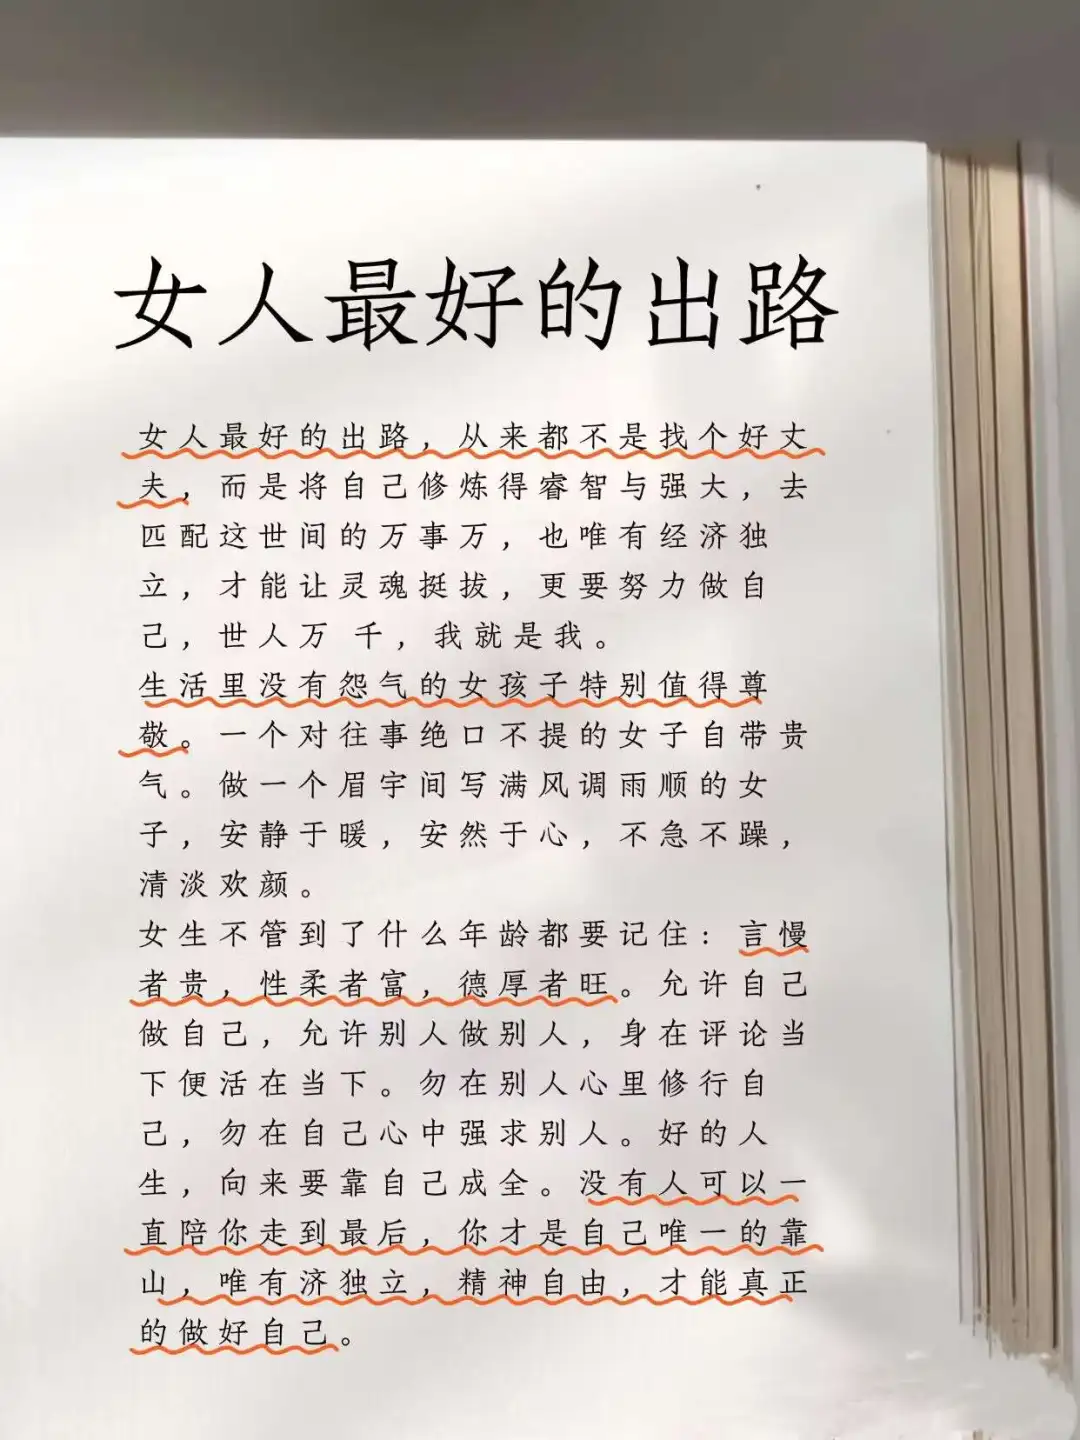 女人最好的出路
女人最好的出路，从来都不是找个好丈
夫，而是将自己修炼得睿智与强大，去
匹配这世间的万事万，也唯有经济独
立，才能让灵魂挺拔，更要努力做自
己，世人万 千，我就是我。
生活里没有怨气的女孩子特别值得尊
敬。一个对往事绝口不提的女子自带贵
气。做一个眉宇间写满风调雨顺的女
子，安静于暖，安然于心，不急不躁，
清淡欢颜。
女生不管到了什么年龄都要记住：言慢
者贵，性柔者富，德厚者旺。允许自己
做自己，允许别人做别人，身在评论当
下便活在当下。勿在别人心里修行自
己，勿在自己心中强求别人。好的人
生，向来要靠自己成全。没有人可以一
直陪你走到最后，你才是自己唯一的靠
山，唯有济独立，精神自由，才能真正
的做好自己。